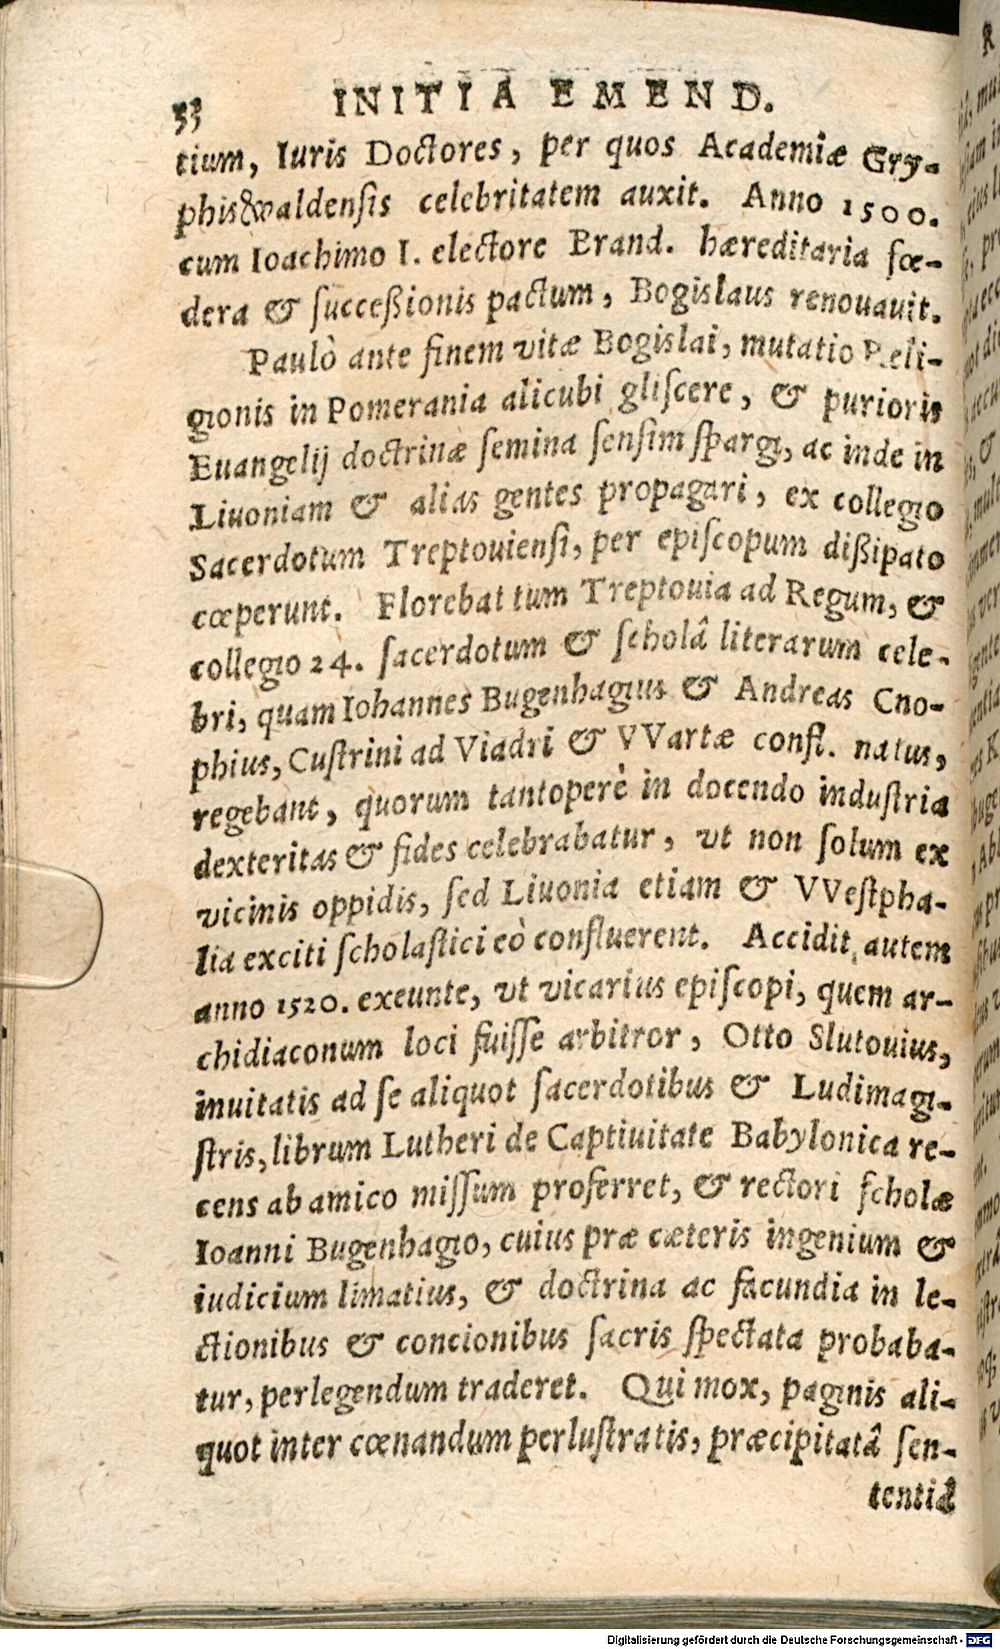 53 INITIA EMEND.
tium, Iuris Doctores, per quos Academiæ Gry-
phisvvaldensis celebritatem auxit. Anno 1500.
cum Ioachimo I. electore Brand. hæreditaria fœ-
dera & ſucceßionis pactum, Bogislaus renouauit.
Paulò ante finem vitæ Bogislai, mutatio Reli-
gionis in Pomerania alicubi gliſcere, & purioris
Euangelij doctrinæ ſemina ſenſim ſpargi, ac inde in
Liuoniam & alias gentes propagari, ex collegio
Sacerdotum Treptouienſi, per epiſcopum dißipato
cœperunt. Florebat tum Treptouia ad Regum, &
collegio 24. ſacerdotum & ſcholâ literarum cele-
bri, quam Iohannes Bugenhagius & Andreas Cno-
phius, Cuſtrini ad Viadri & VVartæ confl. natus,
regebant, quorum tantoperè in docendo induſtria
dexteritas & fides celebrabatur, vt non ſolum ex
vicinis oppidis, ſed Liuonia etiam & VVeſtpha-
lia exciti ſcholaſtici eò confluerent. Accidit autem
anno 1520. exeunte, vt vicarius epiſcopi, quem ar-
chidiaconum loci fuiſſe arbitror, Otto Slutouius,
inuitatis ad ſe aliquot ſacerdotibus & Ludimagi-
ſtris, librum Lutheri de Captiuitate Babylonica re-
cens ab amico miſſum proferret, & rectori ſcholæ
Ioanni Bugenhagio, cuius præ cæteris ingenium &
iudicium limatius, & doctrina ac facundia in le-
ctionibus & concionibus ſacris ſpectata probaba-
tur, perlegendum traderet. Qui mox, paginis ali-
quot inter cœnandum perluſtratis, præcipitatâ ſen-
tentiâ
Digitalisierung gefördert durch die Deutsche Forschungsgemeinschaft - DFG